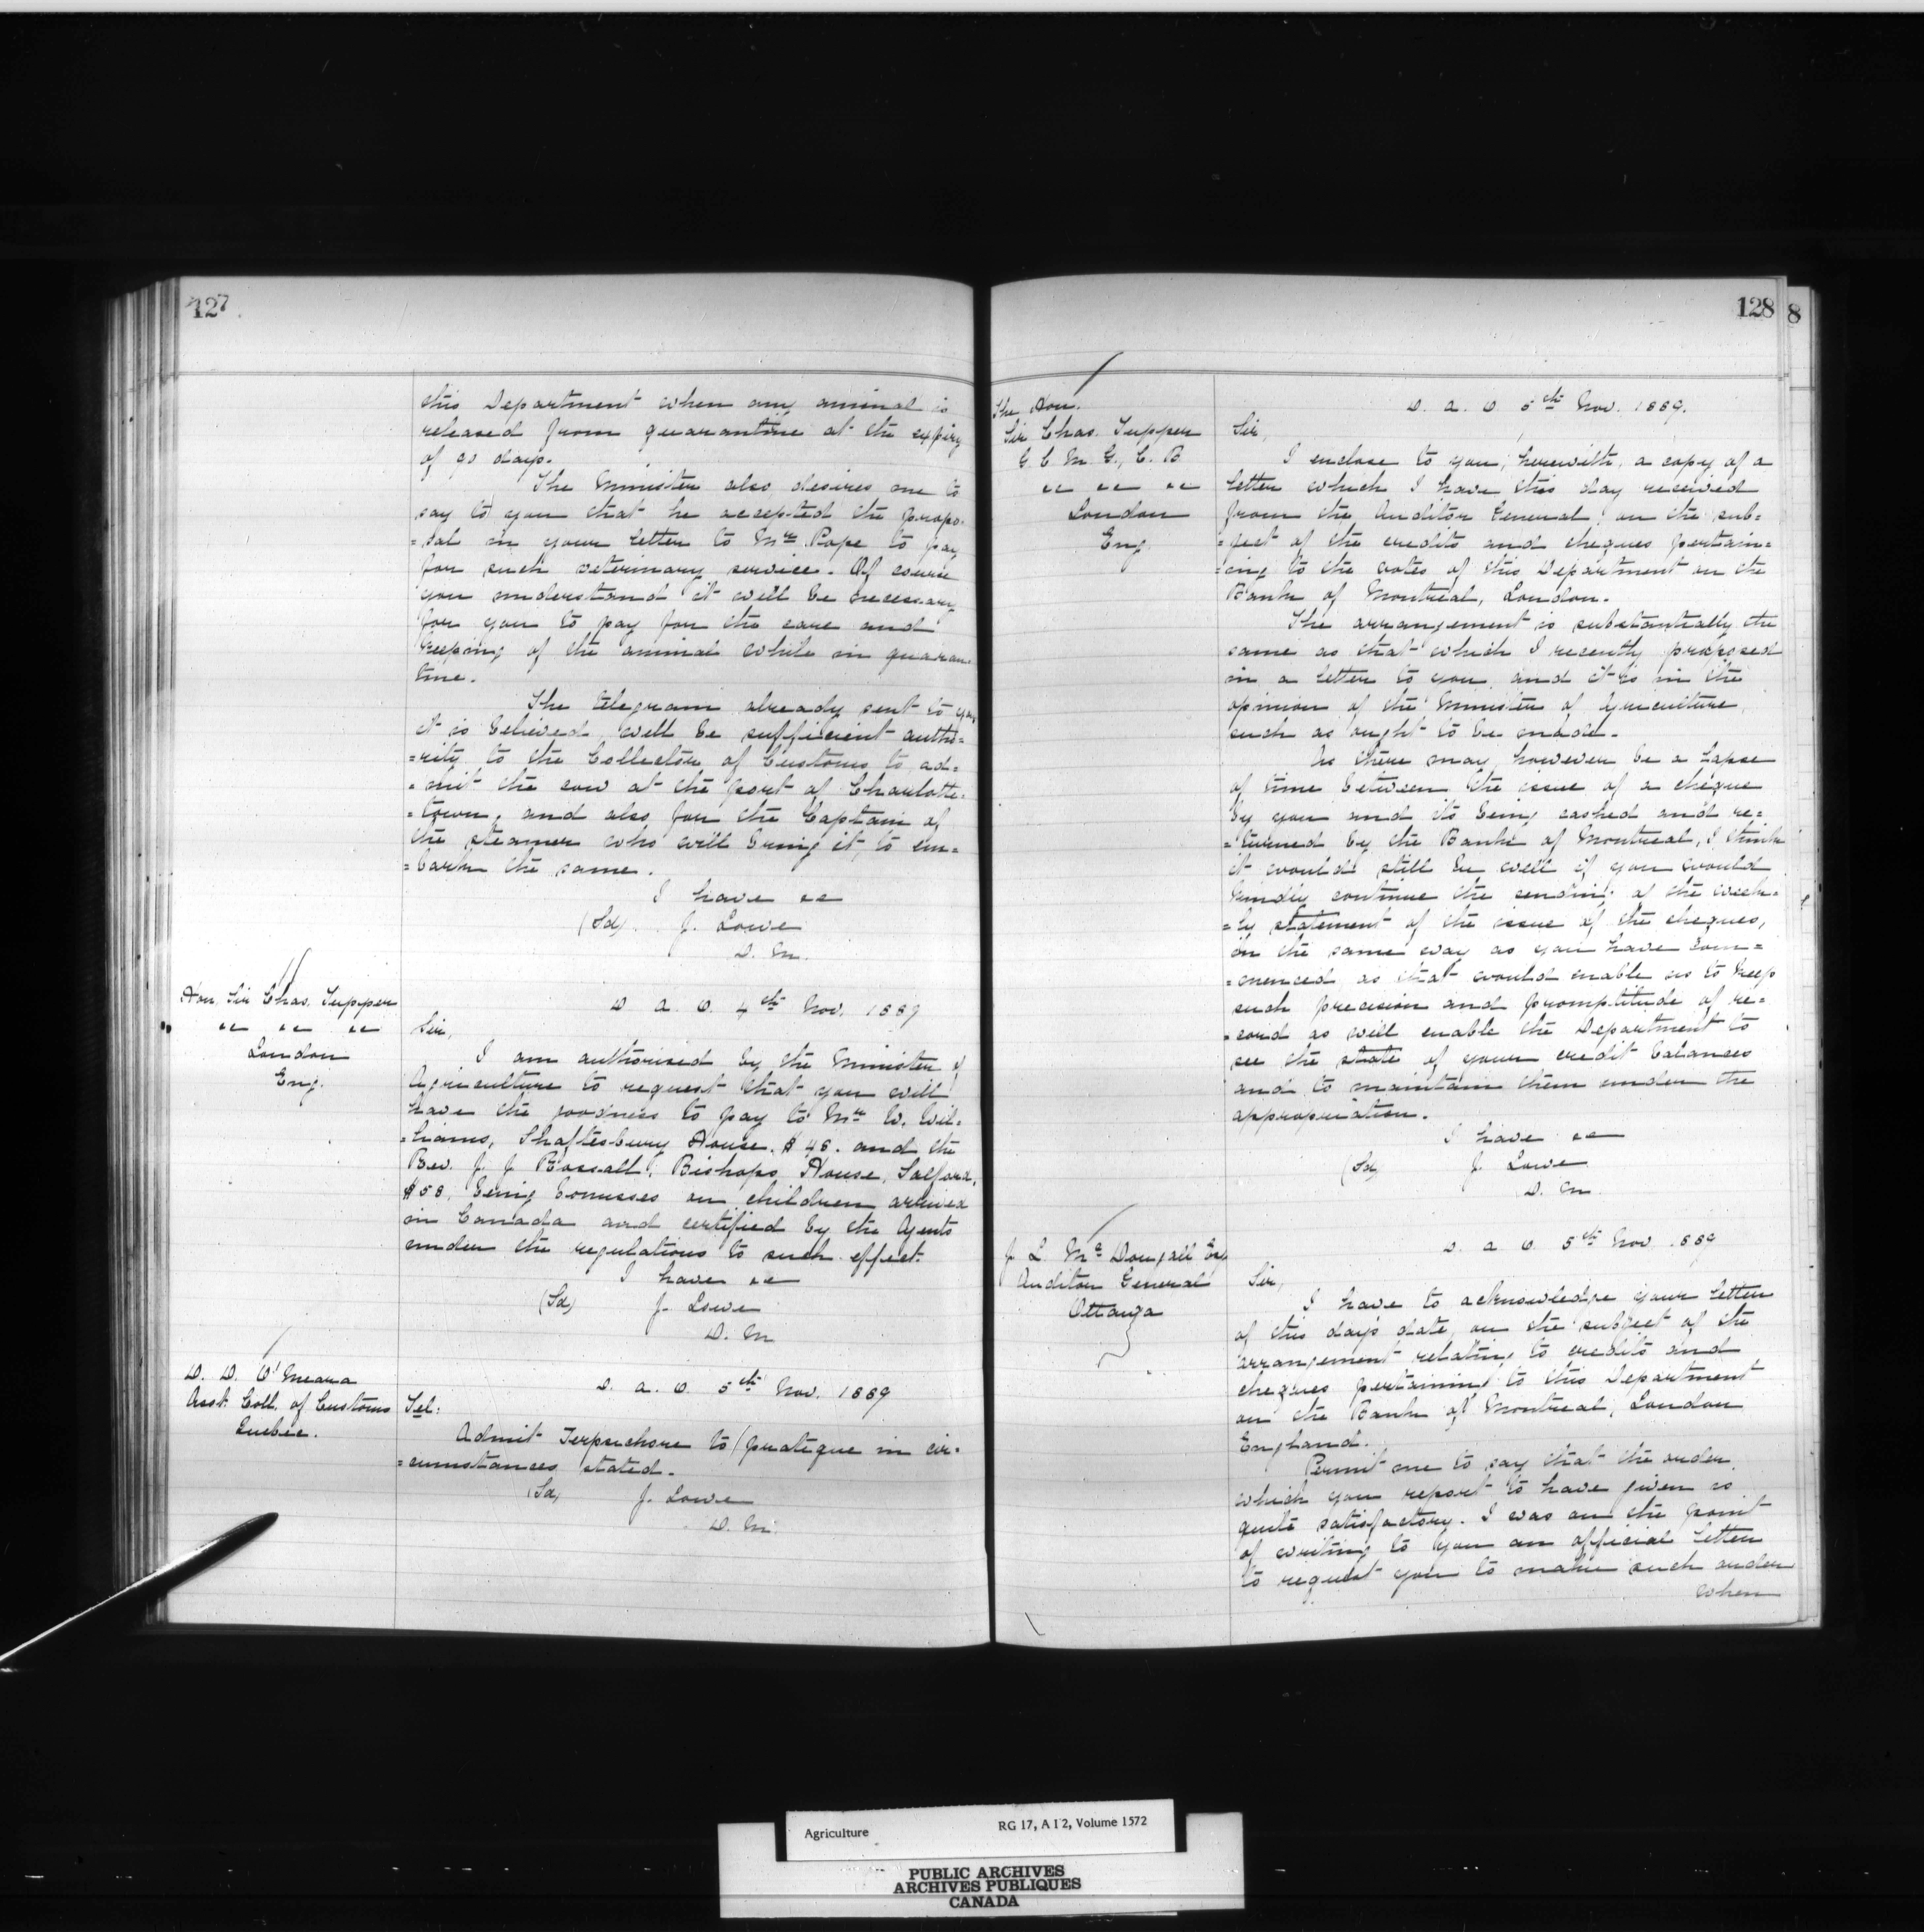 127
this Department when any animal is
released from quarantine at the expiry
of 90 days.
The Minister also desires me to
say to you that he accepted the propo-
=sal in your letter to Mr Pope to pay
for such veterinary service. Of course
you understand it will be necessary
for you to pay for the care and
keeping of the animal while in quaran-
tine.
The telegram already sent to you
it is believed, will be sufficient autho=
=rity to the Collector of Customs to ad=
=mit the cow at the port of Charlotte=
=town, and also for the Captain of
the steamer who will bring it, to em=
=bark the same.
I have &c
(Sd) J. Lowe
D. M.
Hon. Sir Chas. Tupper
&c &c &c
London
Eng.
D. A. O. 4th Nov. 1889
Sir,
I am authorised by the Minister of
Agriculture to request that you will
have the goodness to pay to Mr W. Wil=
=liams, Shaftesbury House, $48. and the
Rev. J. J. Rossall, Bishops House, Salford,
$58, being bonusses on children arrived
in Canada and certified by the Agents
under the regulations to such effect.
I have &c
(Sd) J. Lowe
D. M
D. D. O'Meara
Asst. Coll. of Customs
Quebec.
D. A. O. 5th Nov. 1889
Tel:
Admit Terpsichore to pratique in cir=
=cumstances stated.
(Sd) J. Lowe
D. M.
128
8
The Hon.
Sir Chas. Tupper
G. C. M. G., C. B
&c &c &c
London
Eng.
D. A. O 5th Nov. 1889.
Sir,
I enclose to you, herewith, a copy of a
letter which I have this day received
from the Auditor General, on the sub=
=ject of the credits and cheques pertain=
=ing to the votes of this Department on the
Bank of Montreal, London.
The arrangement is substantially the
same as that which I recently proposed
in a letter to you, and it is in the
opinion of the Minister of Agriculture,
such as ought to be made.
As there may, however be a lapse
of time between the issue of a cheque
by you and its being cashed and re=
=turned by the Bank of Montreal, I think
it would still be well if you would
kindly continue the sending of the week=
=ly statement of the issue of the cheques,
in the same way as you have com=
=menced as that would enable us to keep
such precision and promptitude of re=
=cord as will enable the Department to
see the state of your credit balances
and to maintain them under the
appropriation.
I have &c
(Sd) J. Lowe
D. M
J. L. McDougall Esq
Auditor General
Ottawa
D. A. O. 5th Nov. 1889
Sir,
I have to acknowledge your letter
of this day's date, on the subject of the
arrangement relating to credits and
cheques pertaining to this Department
on the Bank of Montreal, London
England.
Permit me to say that the order
which you report to have given is
quite satisfactory. I was on the point
of writing to you an official letter
to request you to make such order
when
Agriculture RG 17, A I 2, Volume 1572
PUBLIC ARCHIVES
ARCHIVES PUBLIQUES
CANADA